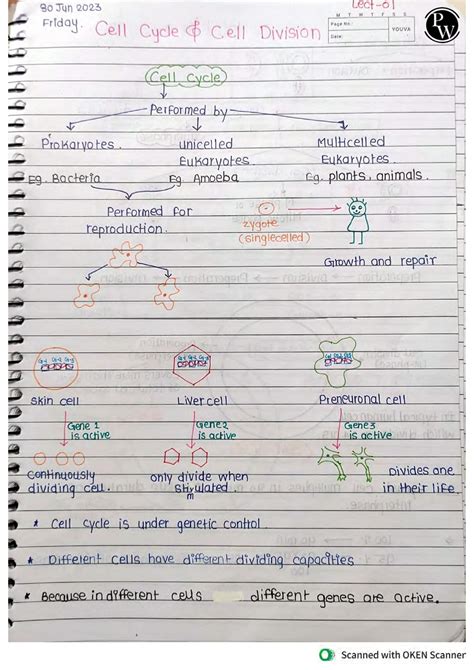 30 Jun 2023
Friday.
Lect-01
M T W T F S S
Page No.:
Date:
YOUVA
PW
Cell Cycle & Cell Division
Cell Cycle
Performed by
Prokaryotes. unicelled Multicelled
Eukaryotes. Eukaryotes.
Eg. Bacteria Eg. Amoeba Eg. plants, animals.
Performed for
reproduction.
zygote
(singlecelled)
Growth and repair
Skin cell Liver cell Preneuronal cell
Gene 1 Gene 2 Gene 3
is active is active is active
Continuously only divide when Divides one
dividing cell. Stimulated. in their life
* Cell cycle is under genetic control.
* Different cells have different dividing capacities
* Because in different cells different genes are active.
Scanned with OKEN Scanner